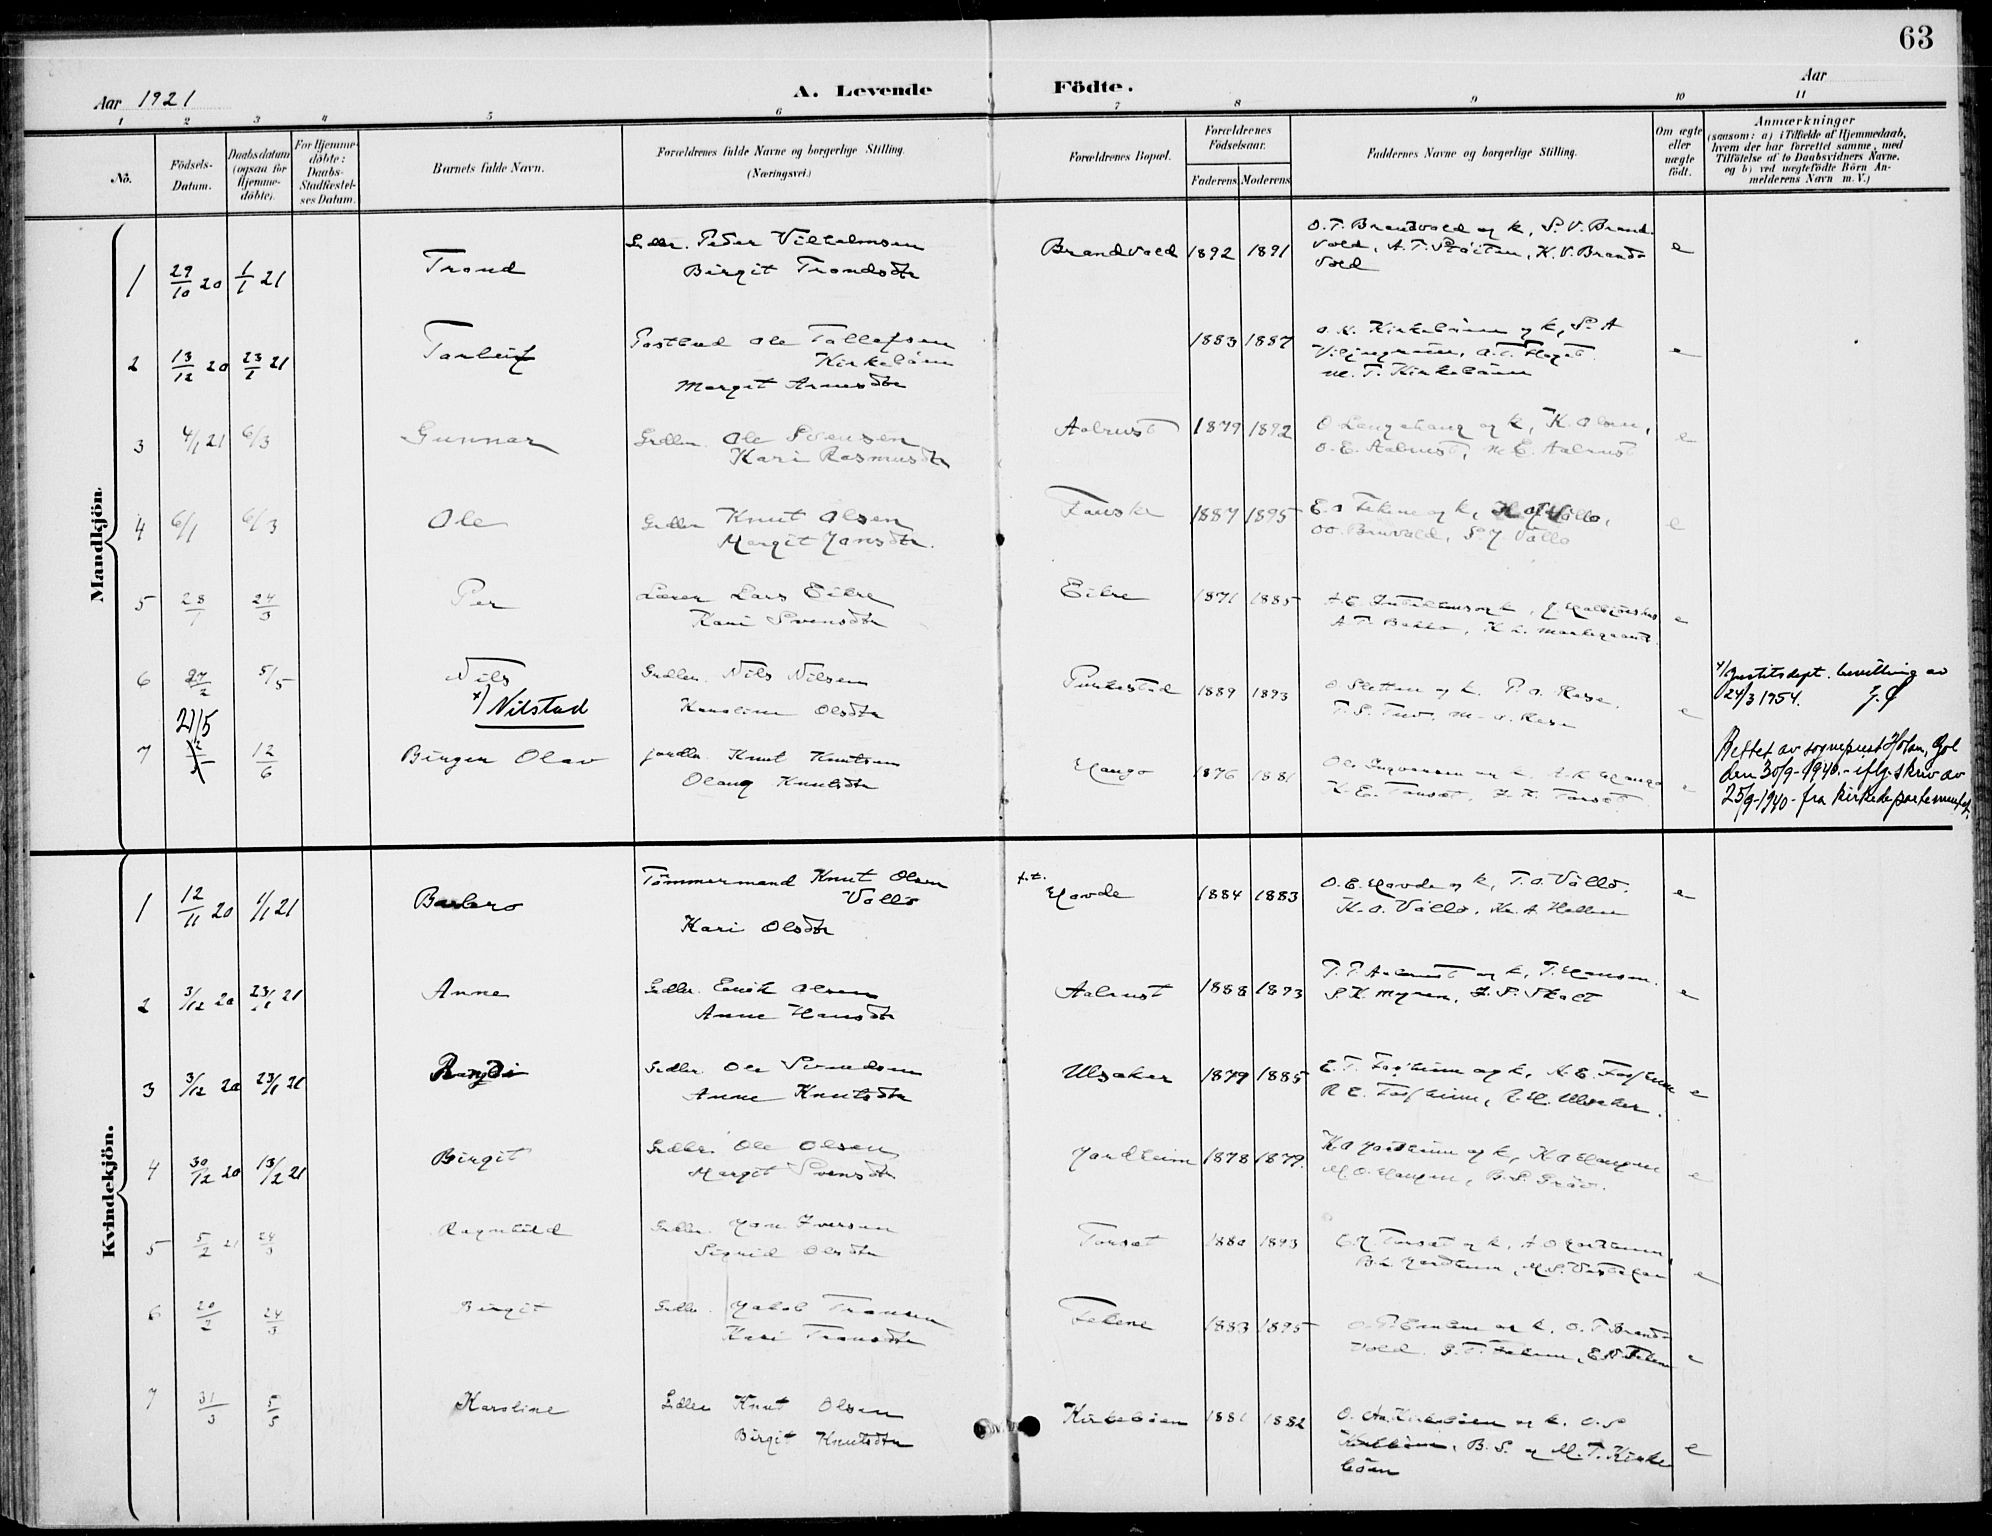 63
Aar 1921
A. Levende Födte.
Aar
1 2 3 4 5 6 7 8 9 10 11
No.
Födsels-Datum.
Daabsdatum (ogsaa for Hjemme-döbte).
For Hjemme-döbte: Daabs-Stadfæstel-ses Datum.
Barnets fulde Navn.
Forældrenes fulde Navne og borgerlige Stilling. (Næringsvei.)
Forældrenes Bopæl.
Forældrenes Födselsaar.
Faderens Moderens
Faddernes Navne og borgerlige Stilling.
Om ægte eller uægte født.
Anmærkninger
(saasom: a) i Tilfælde af Hjemmedaab, hvem der har forrettet samme, med Tilföielse af to Daabsvidners Navne, og b) ved uægtefödte Börn An-melderens Navn m. V.)
Mandkjön.
1 29/10 20 1/1 21 Trond Gdbr. Peder Vilhelmsen Brandvold 1892 1891 O. T. Brandvold og k, S. V. Brand- e
Birgit Trondsdtr vold, A. T. Støiten, K. V. Brand-
vold
2 13/12 20 23/1 21 Torleif Postbud Ole Tollefsen 1883 1887 O. N. Kirkebøen og k, S. A e
Kirkebøen
Margit Arnesdtr M. T. Kirkebøen
3 4/1 21 6/3 Gunnar Grdbr. Ole Svensen Aalrust 1879 1892 O Langehaug og k, K. Olsen, e
Kari Rasmusdtr O. E. Aalrust, M E. Aalrust
4 6/1 6/3 Ole Grdbr Knut Olsen Fauske 1887 1895 E. O Fekene og k, Vøllo, e
Margit Jonsdtr. O O. Bruvold, S J Vøllo
5 28/1 24/3 Per Lærer Lars Eikre Eikre 1871 1885 e
Kari Svensdtr A. T. Bakko, K L.
6 27/2 5/5 Nils Grdbr. Nils Nilsen Purkestad 1889 1893 O Sletten og k. P. O. Rese. e
x) Nilstad Karoline Olsdtr M. O. Rese
x) Justitsdept. bevilling av
24/3 1954.
21/5
7 12/6 Birger Olav Jordbr. Knut Knutsen Haugo 1876 1881 Ole Ingvarsen og k, A. K Haugo e
Olaug Knutsdtr K. E. Torsæt, Torsæt
Rettet av sogneprest Holm, Gol
den 30/9-1940. - iflg. skriv av
25/9-1940 - fra kirkedepartementet.
Kvindekjön.
1 12/11 20 1/1 21 Barbro Tømmermand Knut Olsen f.t. Hovde 1884 1883 O. E. Hovde og k, T. O. Vøllo. e
Vøllo K. O. Vøllo.
Kari Olsdtr
2 3/12 20 23/1 21 Anne Gdbr. Eirik Olsen Aalrust 1888 1893 T. T. Aalrust og k, T. Hansen. e
Anne Hansdtr S. K. Myren,
3 3/12 20 23/1 21 Randi Gdbr. Ole Svendsen Ulsaker 1879 1885 E. T. Fosheim og k, A. E. Fosheim e
Anne Knutsdtr R E. Fosheim, Ulsaker.
4 30/12 20 13/2 21 Birgit Gdbr. Ole Olsen Jordheim 1878 1879. K O Jordheim og k, K O Haugen e
Margit Svensdtr M. O. Haugen, B. S. Grøv.
5 5/2 21 24/3 Ragnhild Gdbr. Jon Iversen Torsæt 1880 1893 Torsæt og k, A O Jordheim e
Sigrid Olsdtr B. L Jordheim,
6 20/2 24/3 Birgit Gdbr. Jakob Tronsen Fekene 1883 1895 og k. O. T Brand- e
Kari Tronsdtr vold. Fekene
7 31/3 5/5 Karoline Gdbr Knut Olsen Kirkebøen 1881 1882 O. Kirkebøen og k. O. S e
Birgit Knutsdtr Kirkebøen, B. S. og M. T. Kirke-
bøen